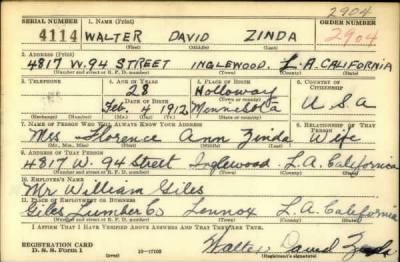 2904
SERIAL NUMBER 1. NAME (Print) ORDER NUMBER
4114 WALTER DAVID ZINDA 2904
(First) (Middle) (Last)
2. ADDRESS (Print)
4817 W. 94 STREET INGLEWOOD, L.A. CALIFORNIA
(Number and street or R. F. D. number) (Town) (County) (State)
3. TELEPHONE 4. AGE IN YEARS 5. PLACE OF BIRTH 6. COUNTRY OF CITIZENSHIP
28 Holloway
DATE OF BIRTH (Town or county)
Feb. 4 1912 Minnesota U S A
(Exchange) (Number) (Mo.) (Day) (Yr.) (State or country)
7. NAME OF PERSON WHO WILL ALWAYS KNOW YOUR ADDRESS 8. RELATIONSHIP OF THAT PERSON
Mrs Florence Ann Zinda Wife
(Mr., Mrs., Miss) (First) (Middle) (Last)
9. ADDRESS OF THAT PERSON
4817 W. 94 Street Inglewood L.A. California
(Number and street or R. F. D. number) (Town) (County) (State)
10. EMPLOYER'S NAME
Mr William Giles
11. PLACE OF EMPLOYMENT OR BUSINESS
Giles Lumber Co Lennox L.A. California
(Number and street or R. F. D. number) (Town) (County) (State)
I AFFIRM THAT I HAVE VERIFIED ABOVE ANSWERS AND THAT THEY ARE TRUE.
REGISTRATION CARD
D. S. S. Form 1 (over) Walter David Zinda
(Registrant's signature)